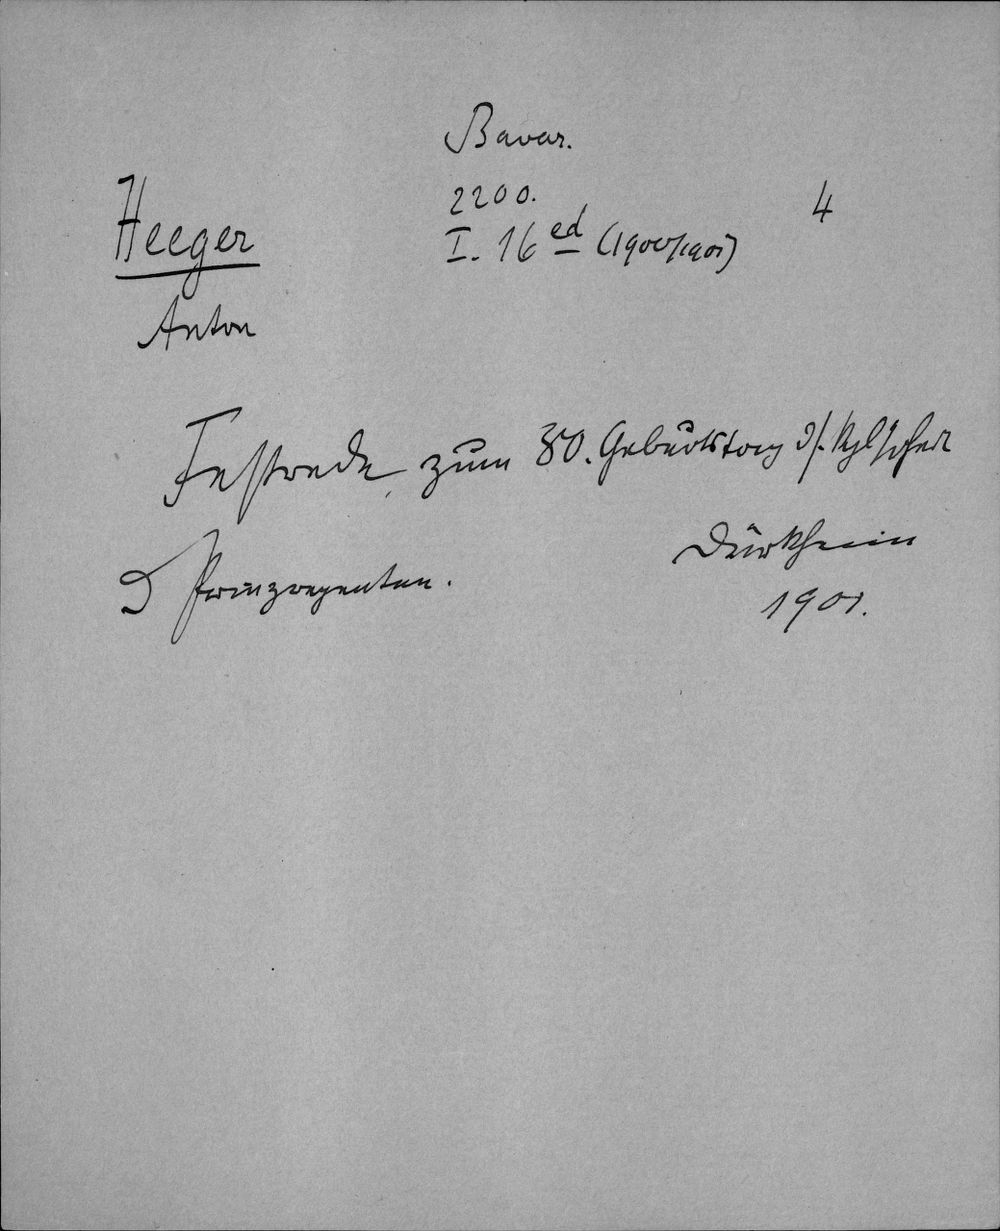 Bavar.
2200. 4
I. 16 ed (1900/1901)
Heeger
Anton
Festrede zum 80. Geburtstag Kgl Hoheit
d Prinzregenten.
Dürkheim
1901.